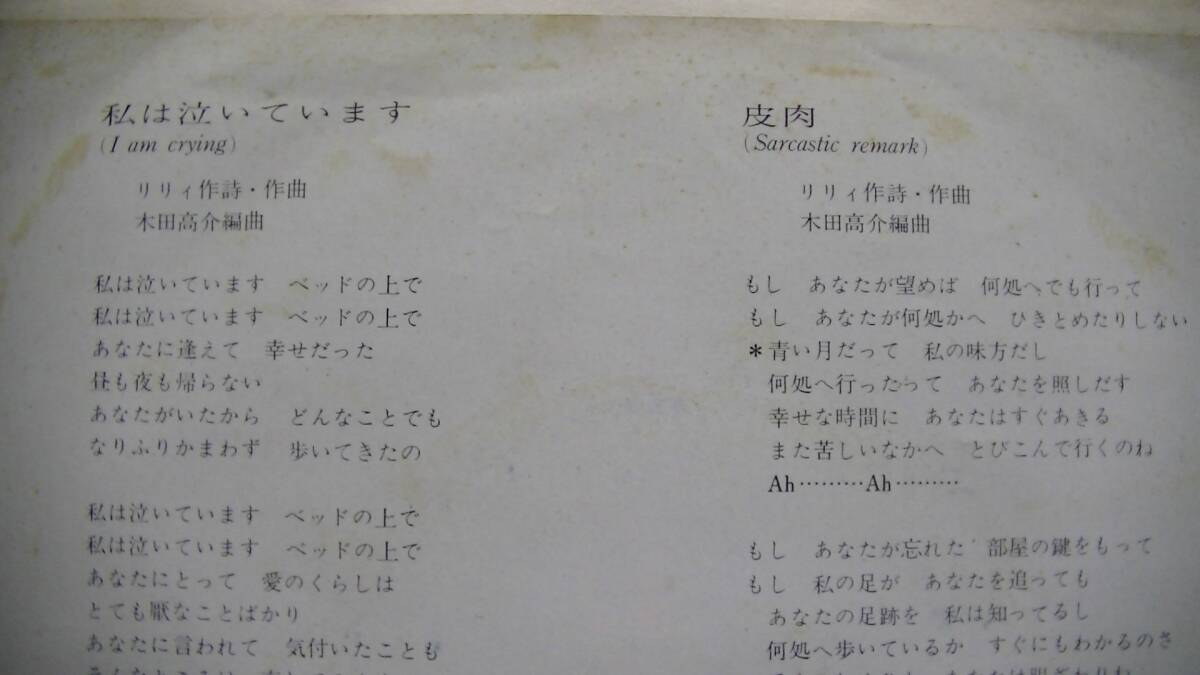 私は泣いています
(I am crying)
リリィ作詩・作曲
木田高介編曲
私は泣いています ベッドの上で
私は泣いています ベッドの上で
あなたに逢えて 幸せだった
昼も夜も帰らない
あなたがいたから どんなことでも
なりふりかまわず 歩いてきたの
私は泣いています ベッドの上で
私は泣いています ベッドの上で
あなたにとって 愛のくらしは
とても厭なことばかり
あなたに言われて 気付いたことも
皮肉
(Sarcastic remark)
リリィ作詩・作曲
木田高介編曲
もし あなたが望めば 何処へでも行って
もし あなたが何処かへ ひきとめたりしない
*青い月だって 私の味方だし
何処へ行ったって あなたを照しだす
幸せな時間に あなたはすぐあきる
また苦しいなかへ とびこんで行くのね
Ah………Ah………
もし あなたが忘れた 部屋の鍵をもって
もし 私の足が あなたを追っても
あなたの足跡を 私は知ってるし
何処へ歩いているか すぐにもわかるのさ